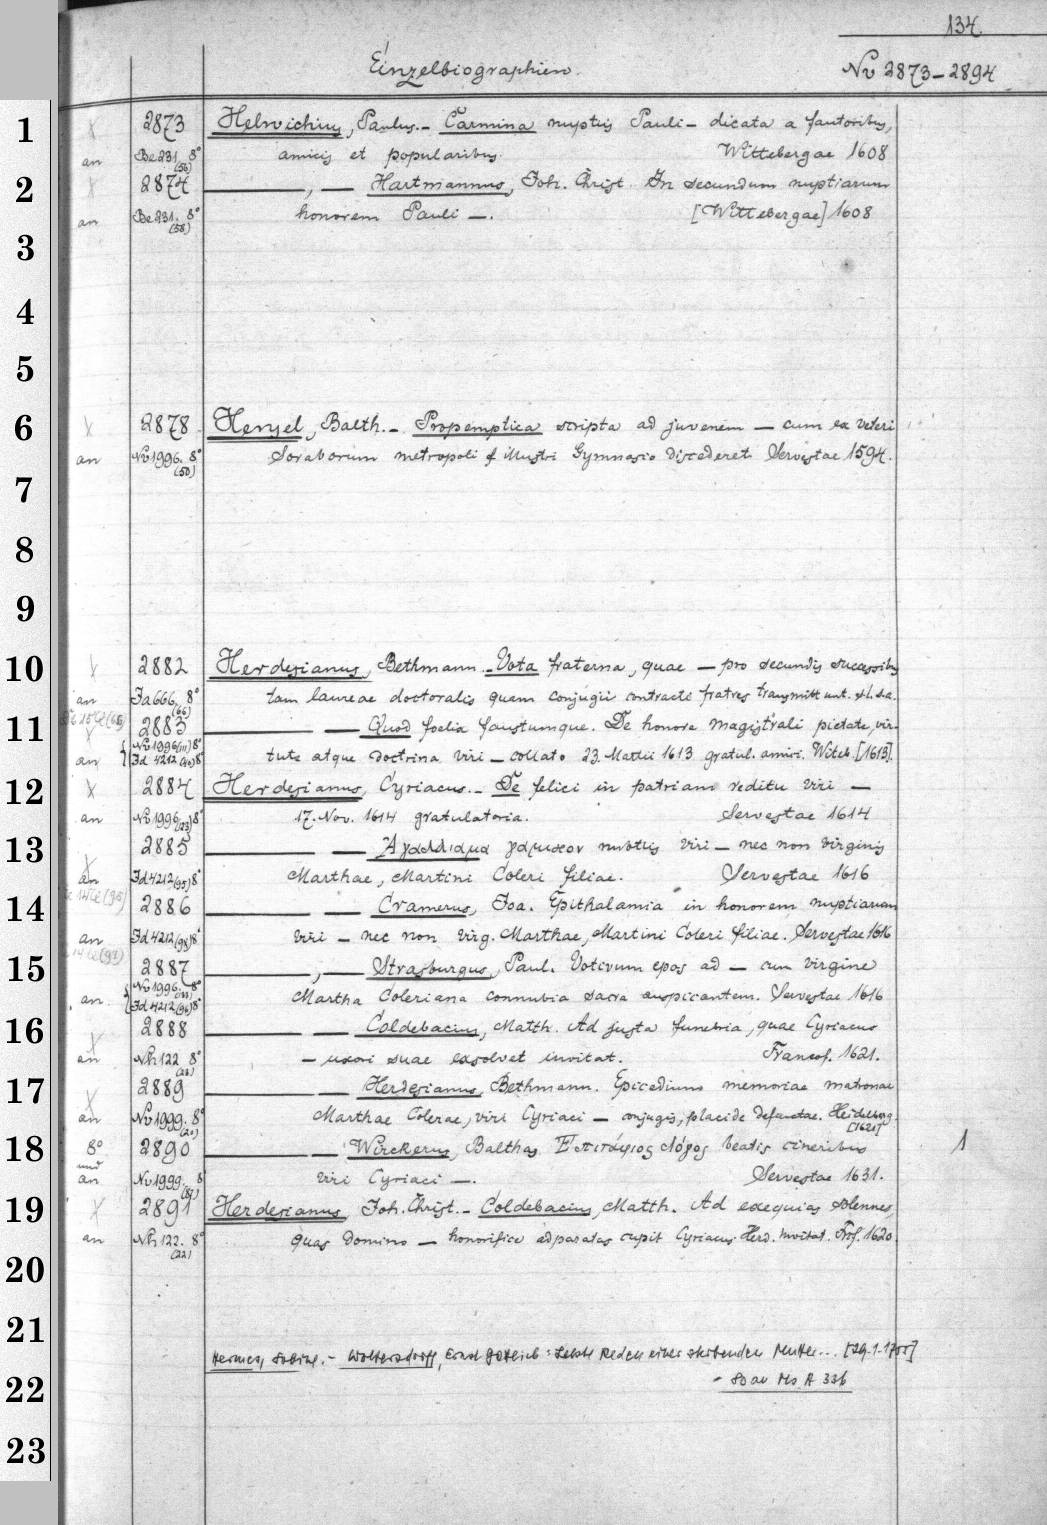 134.
Einzelbiographien. Nv 2873-2894
1 2873 Helvichius, Paulus.- Carmina nuptiis Pauli - dicata a fautoribus,
an Be 231. 8° (56) amicis et popularibus. Wittebergae 1608
2 2874 —, — Hartmannus, Joh. Christ. In secundum nuptiarum
an Be 231. 8° (58) honorem Pauli -. [Wittebergae] 1608
3
4
5
6 2878 Henzel, Balth.- Propemptica scripta ad juvenem - cum ex veteri
an Nv 1996. 8° (50) Soraborum metropoli & illustri Gymnasio discederet. Servestae 1594.
7
8
9
10 2882 Herdesianus, Bethmann.- Vota fraterna, quae - pro secundis successibus
an Ja 666. 8° (66) tam laureae doctoralis quam conjugii contracti fratres transmittunt. s.l. s.a.
11 2883 — — Quod foelix faustumque. De honore magistrali pietate, vir-
an Nv 1996 (111) 8° Jd 4212 8° tute atque doctrina viri - collato 23. Martii 1613 gratul. amici. Witeb. [1613].
12 2884 Herdesianus, Cyriacus.- De felici in patriam reditu viri -
an Nv 1996 (23) 8° 17. Nov. 1614 gratulatoria. Servestae 1614
13 2885 — — Ἀγαλλίαμα γαμικον nubtiis viri - nec non virginis
an Jd 4212 (95) 8° Marthae, Martini Coleri filiae. Servestae 1616
14 2886 — — Cramerus, Joa. Epithalamia in honorem nuptiarum
an Jd 4212 (98) 8° viri - nec non virg. Marthae, Martini Coleri filiae. Servestae 1616
15 2887 —, — Strasburgus, Paul. Votivum epos ad - cum virgine
an. Nv 1996. 8° Jd 4212 (96) 8° Martha Coleriana connubia sacra auspicantem. Servestae 1616
16 2888 — — Coldebacius, Matth. Ad justa funebria, quae Cyriacus
an Nh 122 8° (23) - uxori suae exsolvet invitat. Francof. 1621.
17 2889 — — Herdesianus, Bethmann. Epicedium memoriae matronae
an Nv 1999. 8° (20) Marthae Colerae, viri Cyriaci - conjugis, placide defunctae. Heidelberg. [1621]
18 8° 2890 — — Wirckerus, Balthas. Επιτάφιος λόγος beatis cineribus 1
und an Nv 1999. 8° viri Cyriaci -. Servestae 1631.
19 2891 Herdesianus, Joh. Christ.- Coldebacius, Matth. Ad exequias solennes,
an Nh 122. 8° (22) quas domino - honorifice adparatas cupit Cyriacus Herd. invitat. Frcf. 1620.
20
21
Hermes, Sabine.- Woltersdorff, Ernst Gottlieb: Letzte Reden einer sterbenden Mutter... [29.1.1755]
22 - So au Ms A 336
23